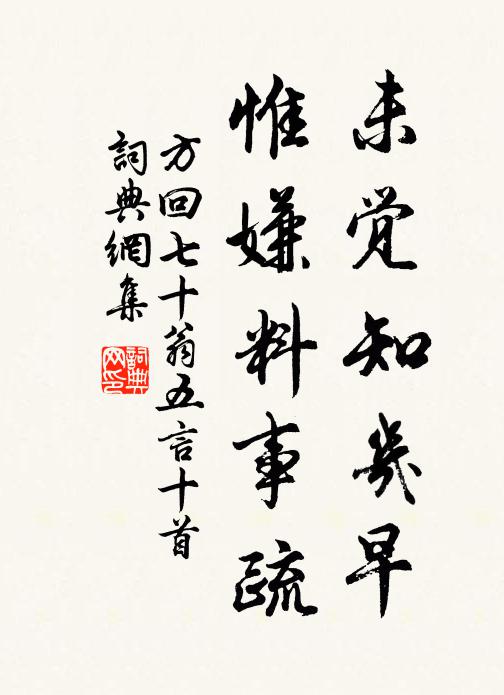 未覚知幾早
惟嫌料事疏
方回七十翁五言十首
詞典網集
詞典网印